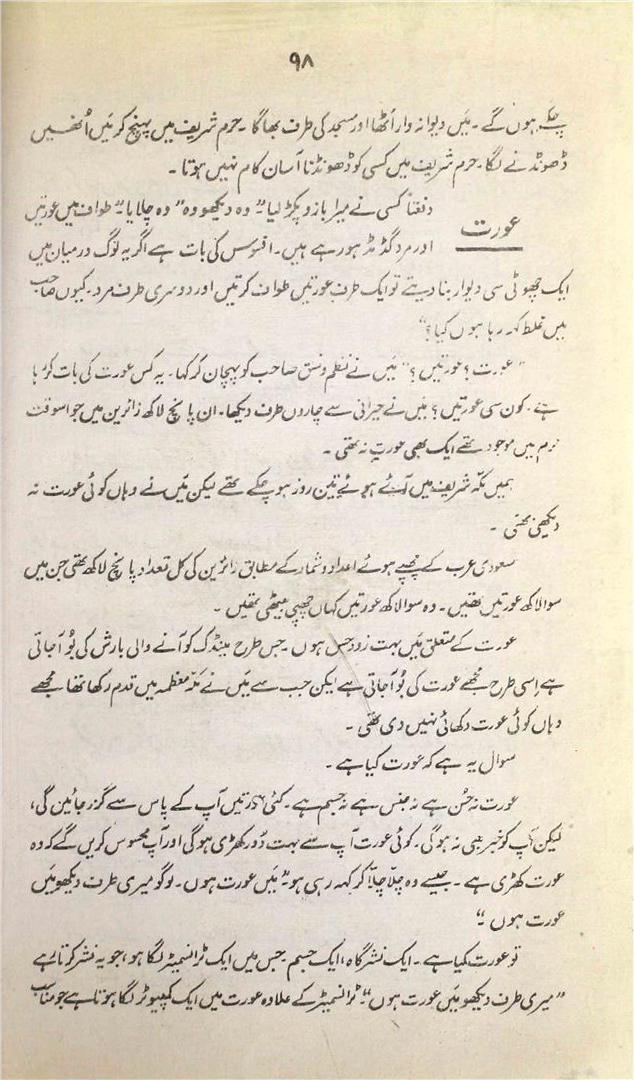 ۹۸
چکے ہوں گے ۔ میں دیوانہ وار اُٹھا اور مسجد کی طرف بھاگا ۔ حرم شریف میں پہنچ کر میں اُنھیں
ڈھونڈنے لگا ۔ حرم شریف میں کسی کو ڈھونڈنا آسان کام نہیں ہوتا ۔
عورت
دفعتاً کسی نے میرا بازو پکڑ لیا ”وہ دیکھو وہ“ وہ چلایا ”طواف میں عورتیں
اور مرد گڈ مڈ ہو رہے ہیں ۔ افسوس کی بات ہے اگر یہ لوگ درمیان میں
ایک چھوٹی سی دیوار بنا دیتے تو ایک طرف عورتیں طواف کرتیں اور دوسری طرف مرد ۔ کیوں صاحب
میں غلط کہہ رہا ہوں کیا ؟“
”عورت ؟ عورتیں ؟“ میں نے نظم و نسق صاحب کو پہچان کر کہا ۔ یہ کس عورت کی بات کر رہا
ہے ۔ کون سی عورتیں ؟ میں نے حیرانی سے چاروں طرف دیکھا ۔ ان پانچ لاکھ زائرین میں جو اسوقت
حرم میں موجود تھے ایک بھی عورت نہ تھی ۔
ہمیں مکّہ شریف میں آئے ہوئے تین روز ہو چکے تھے لیکن میں نے وہاں کوئی عورت نہ
دیکھی تھی ۔
سعودی عرب کے چھپے ہوئے اعداد و شمار کے مطابق زائرین کی کل تعداد پانچ لاکھ تھی جن میں
سوا لاکھ عورتیں تھیں ۔ وہ سوا لاکھ عورتیں کہاں چھپی بیٹھی تھیں ۔
عورت کے متعلق میں بہت زود حس ہوں ۔ جس طرح مینڈک کو آنے والی بارش کی بُو آ جاتی
ہے اِسی طرح مجھے عورت کی بُو آ جاتی ہے لیکن جب سے میں نے مکّہ معظمہ میں قدم رکھا تھا مجھے
وہاں کوئی عورت دکھائی نہیں دی تھی ۔
سوال یہ ہے کہ عورت کیا ہے ۔
عورت نہ حُسن ہے نہ جنس ہے نہ جسم ہے ۔ کئی عورتیں آپ کے پاس سے گزر جائیں گی ،
لیکن آپ کو خبر ہی نہ ہو گی ۔ کوئی عورت آپ سے بہت دُور کھڑی ہو گی اور آپ محسوس کریں گے کہ وہ
عورت کھڑی ہے ۔ جیسے وہ چلّا چلّا کر کہہ رہی ہو ”میں عورت ہوں ۔ لوگو میری طرف دیکھو میں
عورت ہوں ۔“
تو عورت کیا ہے ۔ ایک نشر گاہ ، ایک جسم جس میں ایک ٹرانسمیٹر لگا ہو ، جو یہ نشر کرتا رہے
”میری طرف دیکھو میں عورت ہوں“ ٹرانسمیٹر کے علاوہ عورت میں ایک کمپیوٹر لگا ہوتا ہے جو مناسب